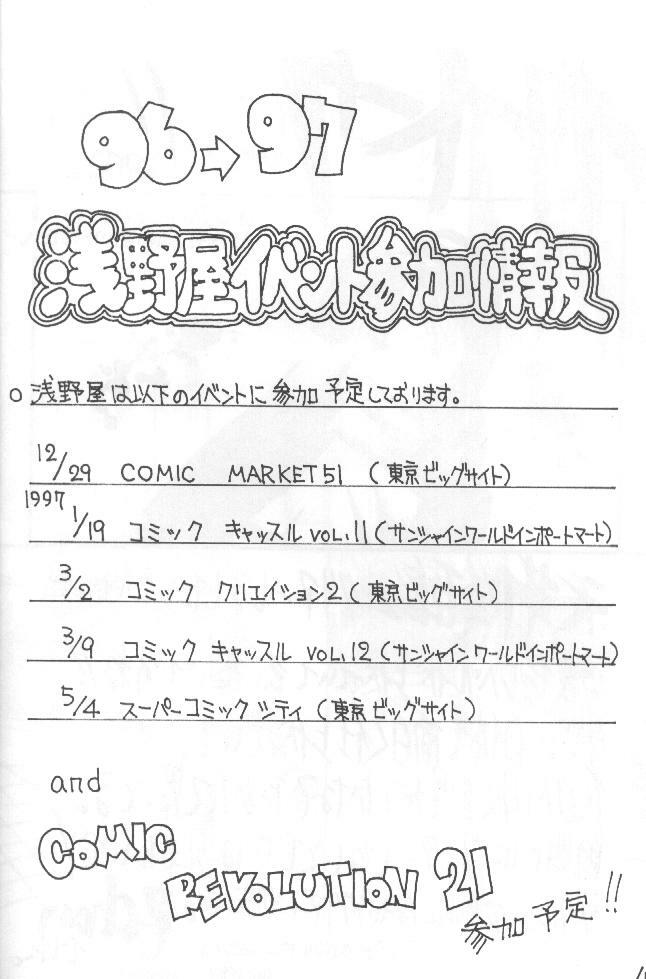 96→97
浅野屋イベント参加情報
○ 浅野屋は以下のイベントに参加予定しております。
12/29 COMIC MARKET51 (東京ビッグサイト)
1997
1/19 コミック キャッスル VOL.11 (サンシャインワールドインポートマート)
3/2 コミック クリエイション2 (東京ビッグサイト)
3/9 コミック キャッスル VOL.12 (サンシャインワールドインポートマート)
5/4 スーパーコミックシティ (東京ビッグサイト)
and
COMIC
REVOLUTION 21
参加予定!!